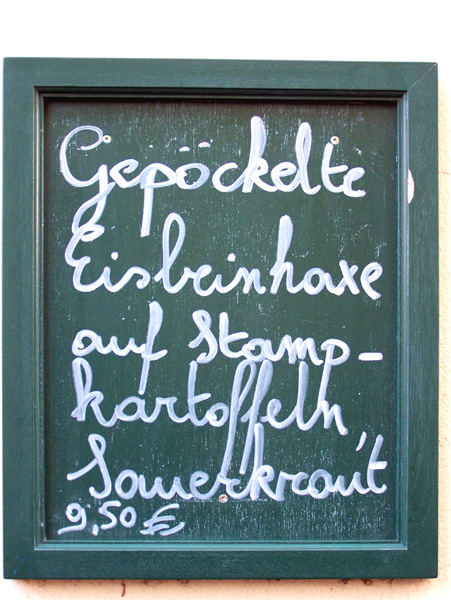 Gepöckelte
Eisbeinhaxe
auf Stamp-
kartoffeln,
Sauerkraut
9,50 €